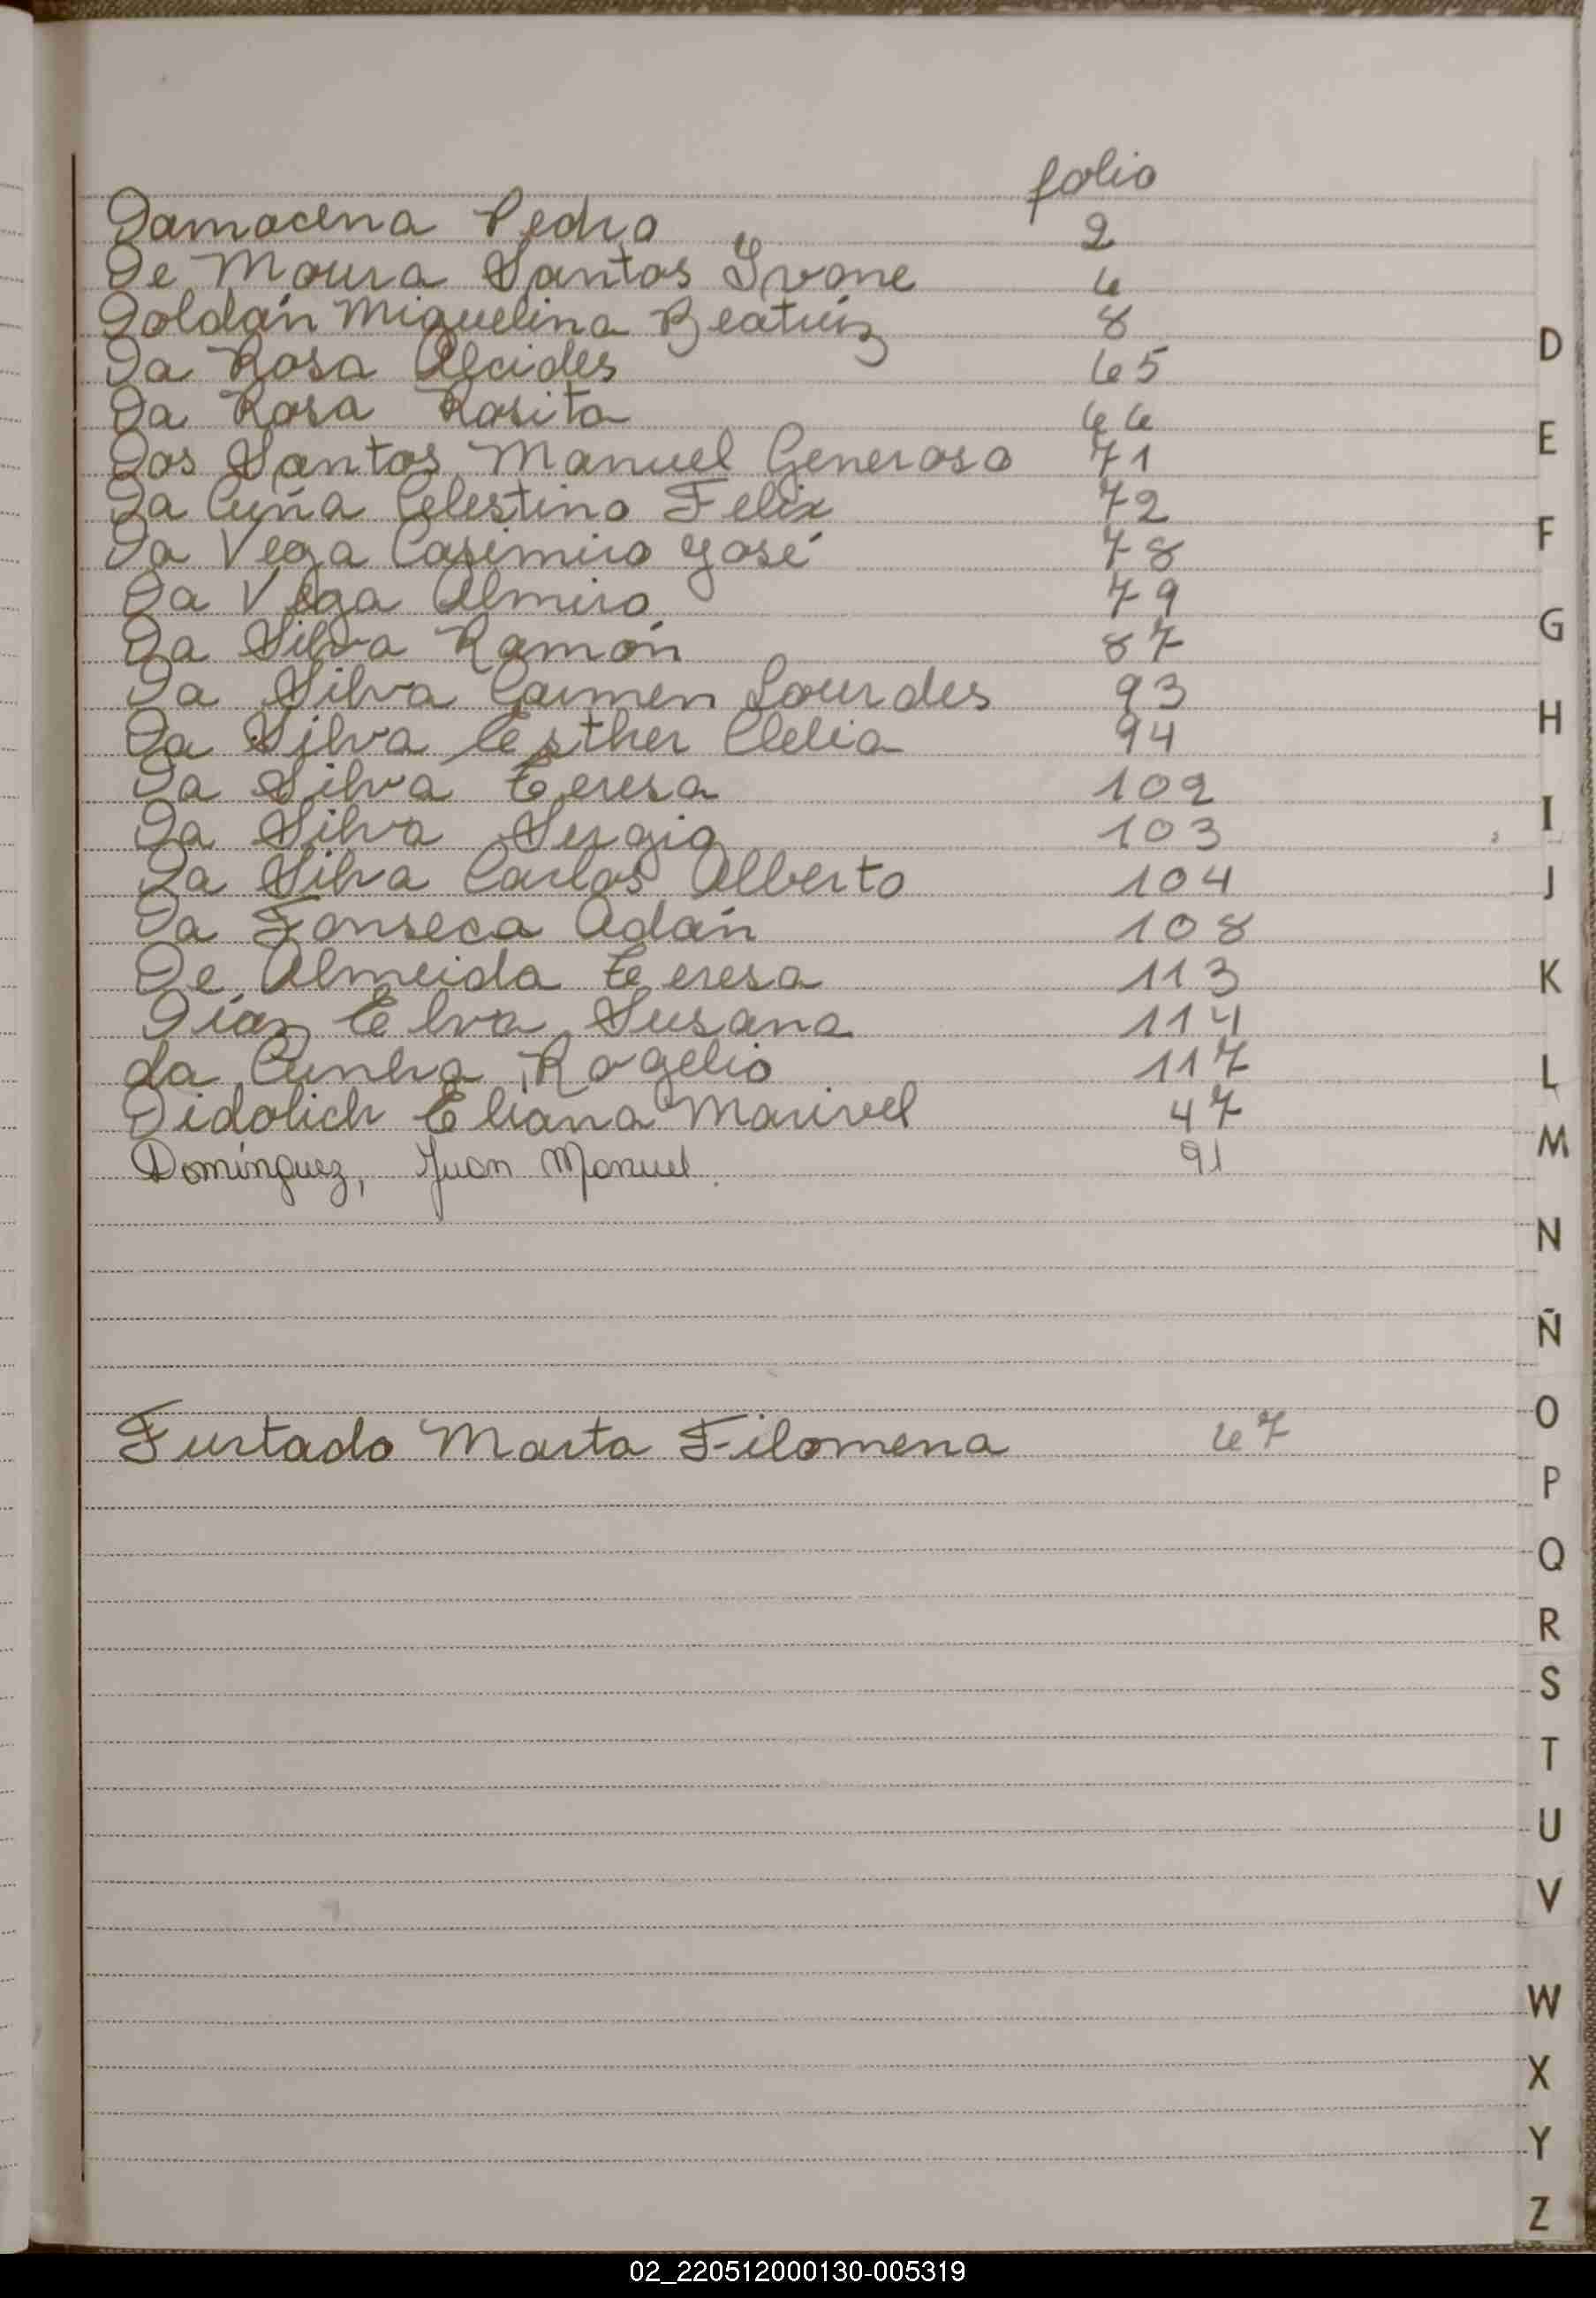 folio
Damacena Pedro 2
De Moura Santos Ivone 6
Doldán Miguelina Beatríz 8
Da Rosa Alcides 65
Da Rosa Rosita 66
Dos Santos Manuel Generoso 71
Da Cuña Celestino Felix 72
Da Vega Casimiro José 78
Da Vega Almiro 79
Da Silva Ramón 87
Da Silva Carmen Lourdes 93
Da Silva Esther Clelia 94
Da Silva Teresa 102
Da Silva Sergio 103
Da Silva Carlos Alberto 104
Da Fonseca Adán 108
De Almeida Teresa 113
Díaz Elva Susana 114
da Cunha Rogelio 117
Didolich Eliana Marivel 47
Domínguez, Juan Manuel. 91
Furtado Marta Filomena 67
D
E
F
G
H
I
J
K
L
M
N
Ñ
O
P
Q
R
S
T
U
V
W
X
Y
Z
02_220512000130-005319